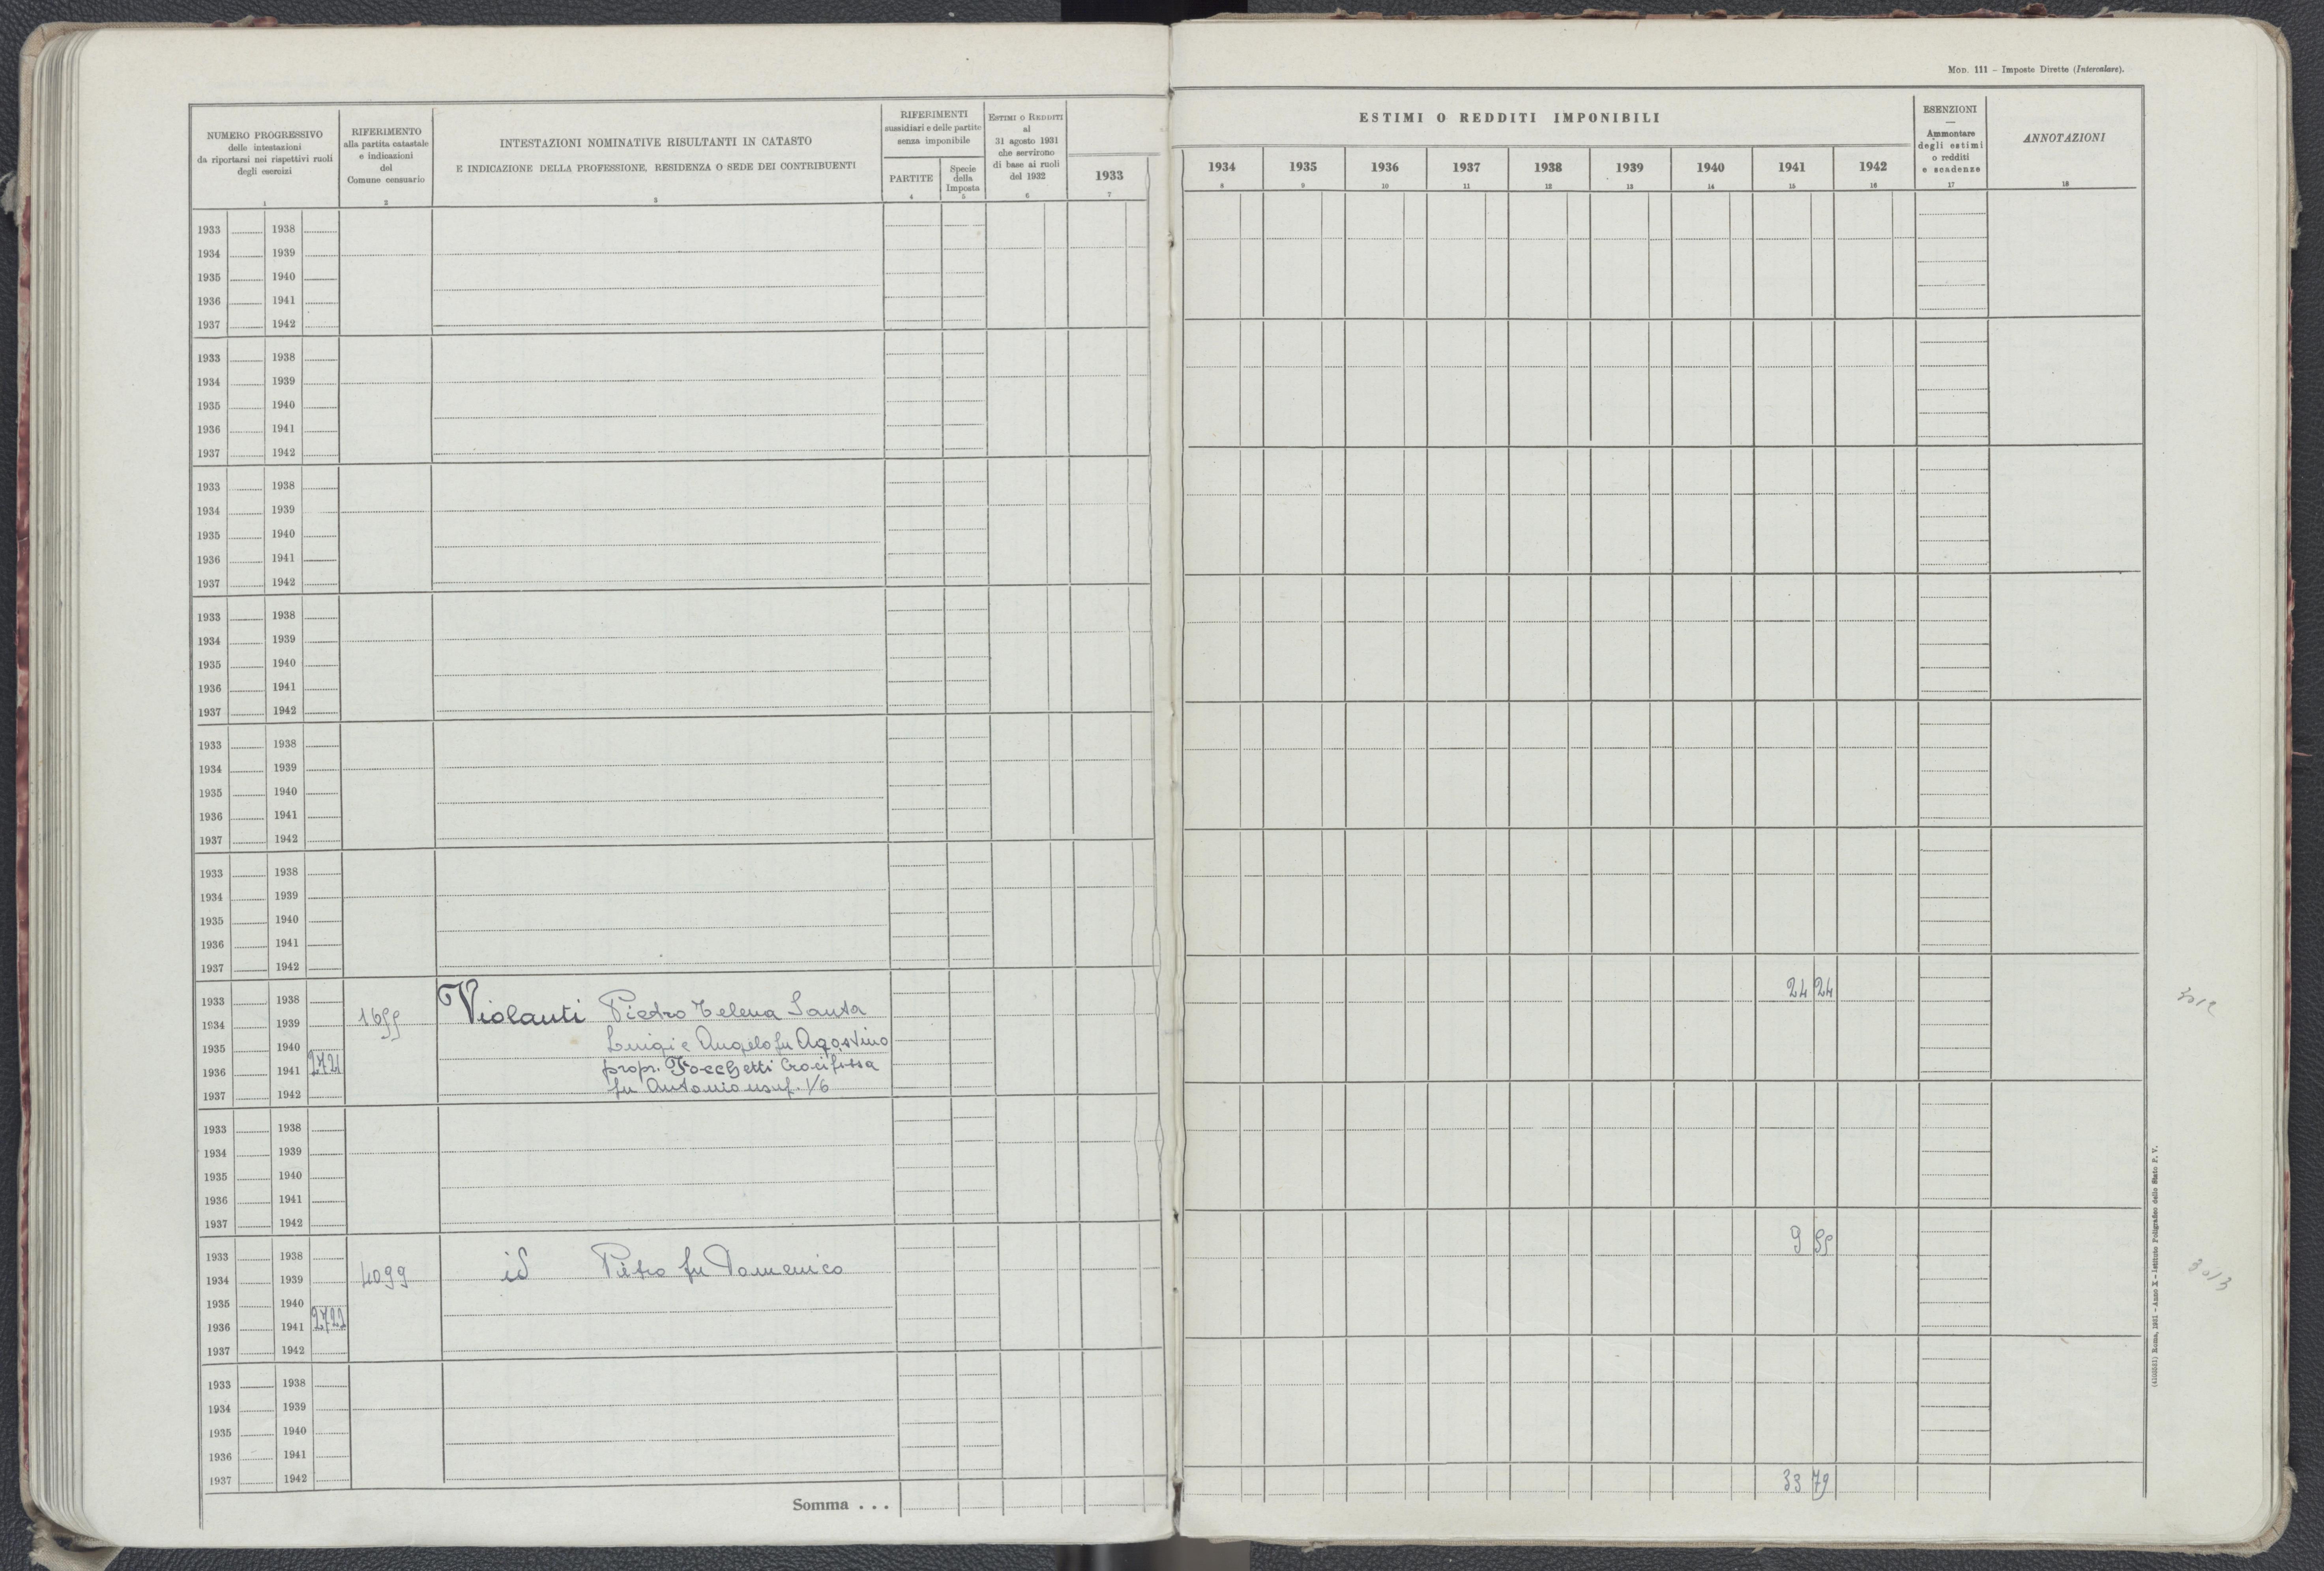 MOD. 111 – Imposte Dirette (Intercalare).
NUMERO PROGRESSIVO
delle intestazioni
da riportarsi nei rispettivi ruoli
degli esercizi
1
RIFERIMENTO
alla partita catastale
e indicazioni
del
Comune censuario
2
INTESTAZIONI NOMINATIVE RISULTANTI IN CATASTO
E INDICAZIONE DELLA PROFESSIONE, RESIDENZA O SEDE DEI CONTRIBUENTI
3
RIFERIMENTI
sussidiari e delle partite
senza imponibile
PARTITE
4
Specie
della
Imposta
5
ESTIMI O REDDITI
al
31 agosto 1931
che servirono
di base ai ruoli
del 1932
6
1933
7
ESTIMI O REDDITI IMPONIBILI
1934 1935 1936 1937 1938 1939 1940 1941 1942
8 9 10 11 12 13 14 15 16
ESENZIONI
—
Ammontare
degli estimi
o redditi
e scadenze
17
ANNOTAZIONI
18
1933 1938
1934 1939
1935 1940
1936 1941
1937 1942
1933 1938
1934 1939
1935 1940
1936 1941
1937 1942
1933 1938
1934 1939
1935 1940
1936 1941
1937 1942
1933 1938
1934 1939
1935 1940
1936 1941
1937 1942
1933 1938
1934 1939
1935 1940
1936 1941
1937 1942
1933 1938
1934 1939
1935 1940
1936 1941
1937 1942
1933 1938 24 24
1934 1939 1655 Violanti Piedro Telena Santa
1935 1940 Luigi e Angelo fu Agostino
1936 1941 2721 propr. Focchetti Crocifissa
1937 1942 fu Antonio usuf. 1/6
3012
1933 1938
1934 1939
1935 1940
1936 1941
1937 1942
1933 1938 9 55
1934 1939 4099 id Pietro fu Domenico
1935 1940
1936 1941 2722
1937 1942
3013
1933 1938
1934 1939
1935 1940
1936 1941
1937 1942
Somma . . . 33 79
Roma, 1931 – Anno X – Istituto Poligrafico dello Stato P. V.